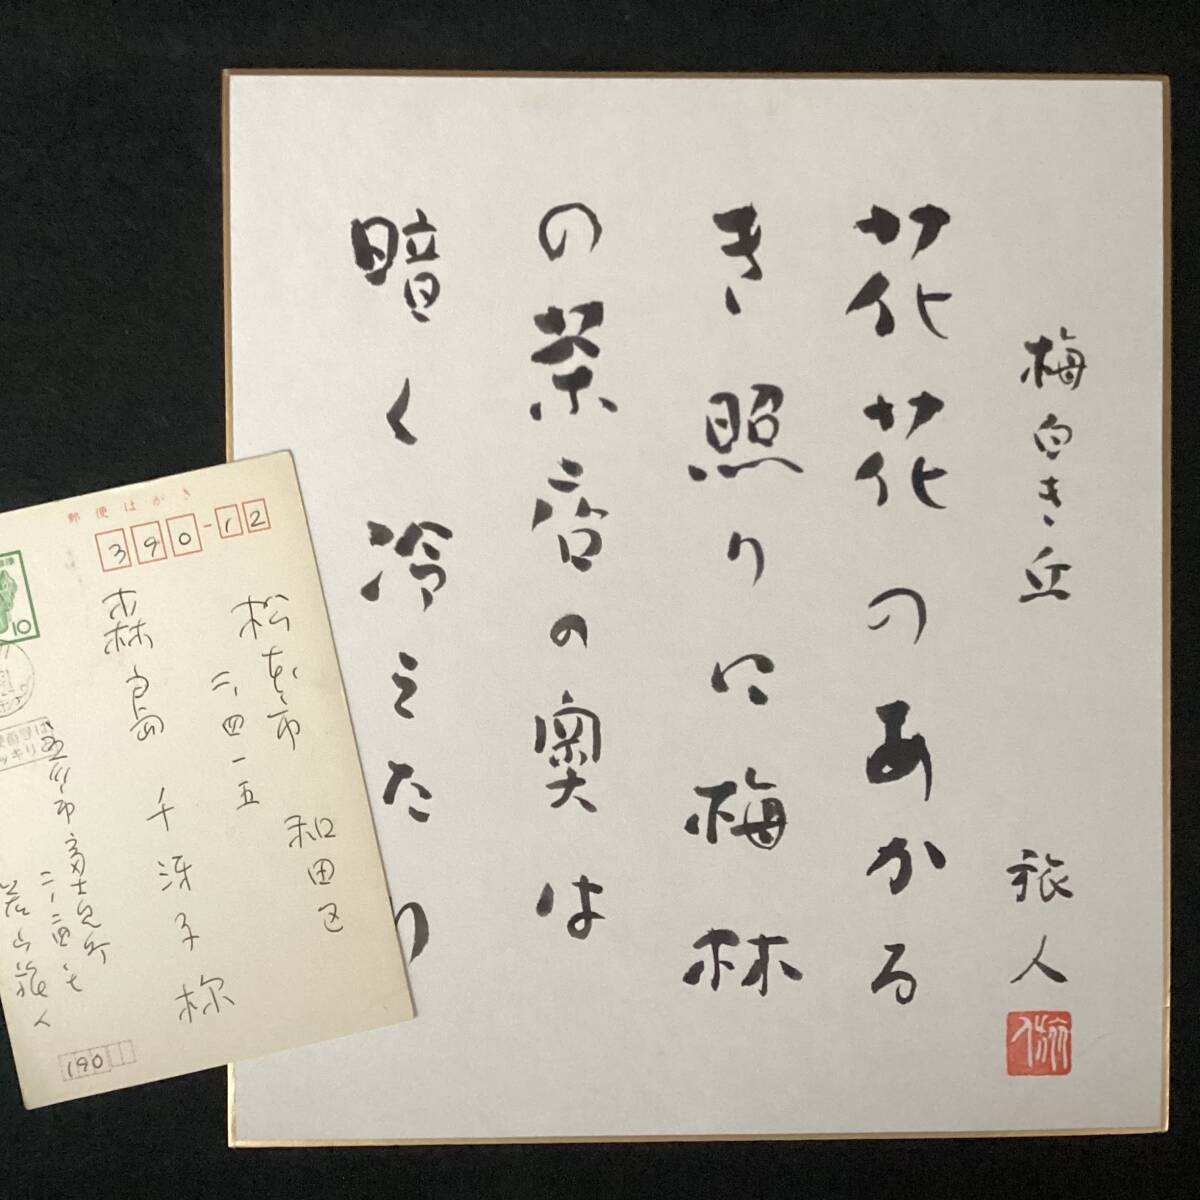 梅白き丘　旅人
花花のあかる
き照りに梅林
の茶店の奥は
暗く冷えたり
郵便はがき
390-12
松本市 和田区
二、四一五
森島 千冴子 称
立川市富士見町
若山旅人
190
10